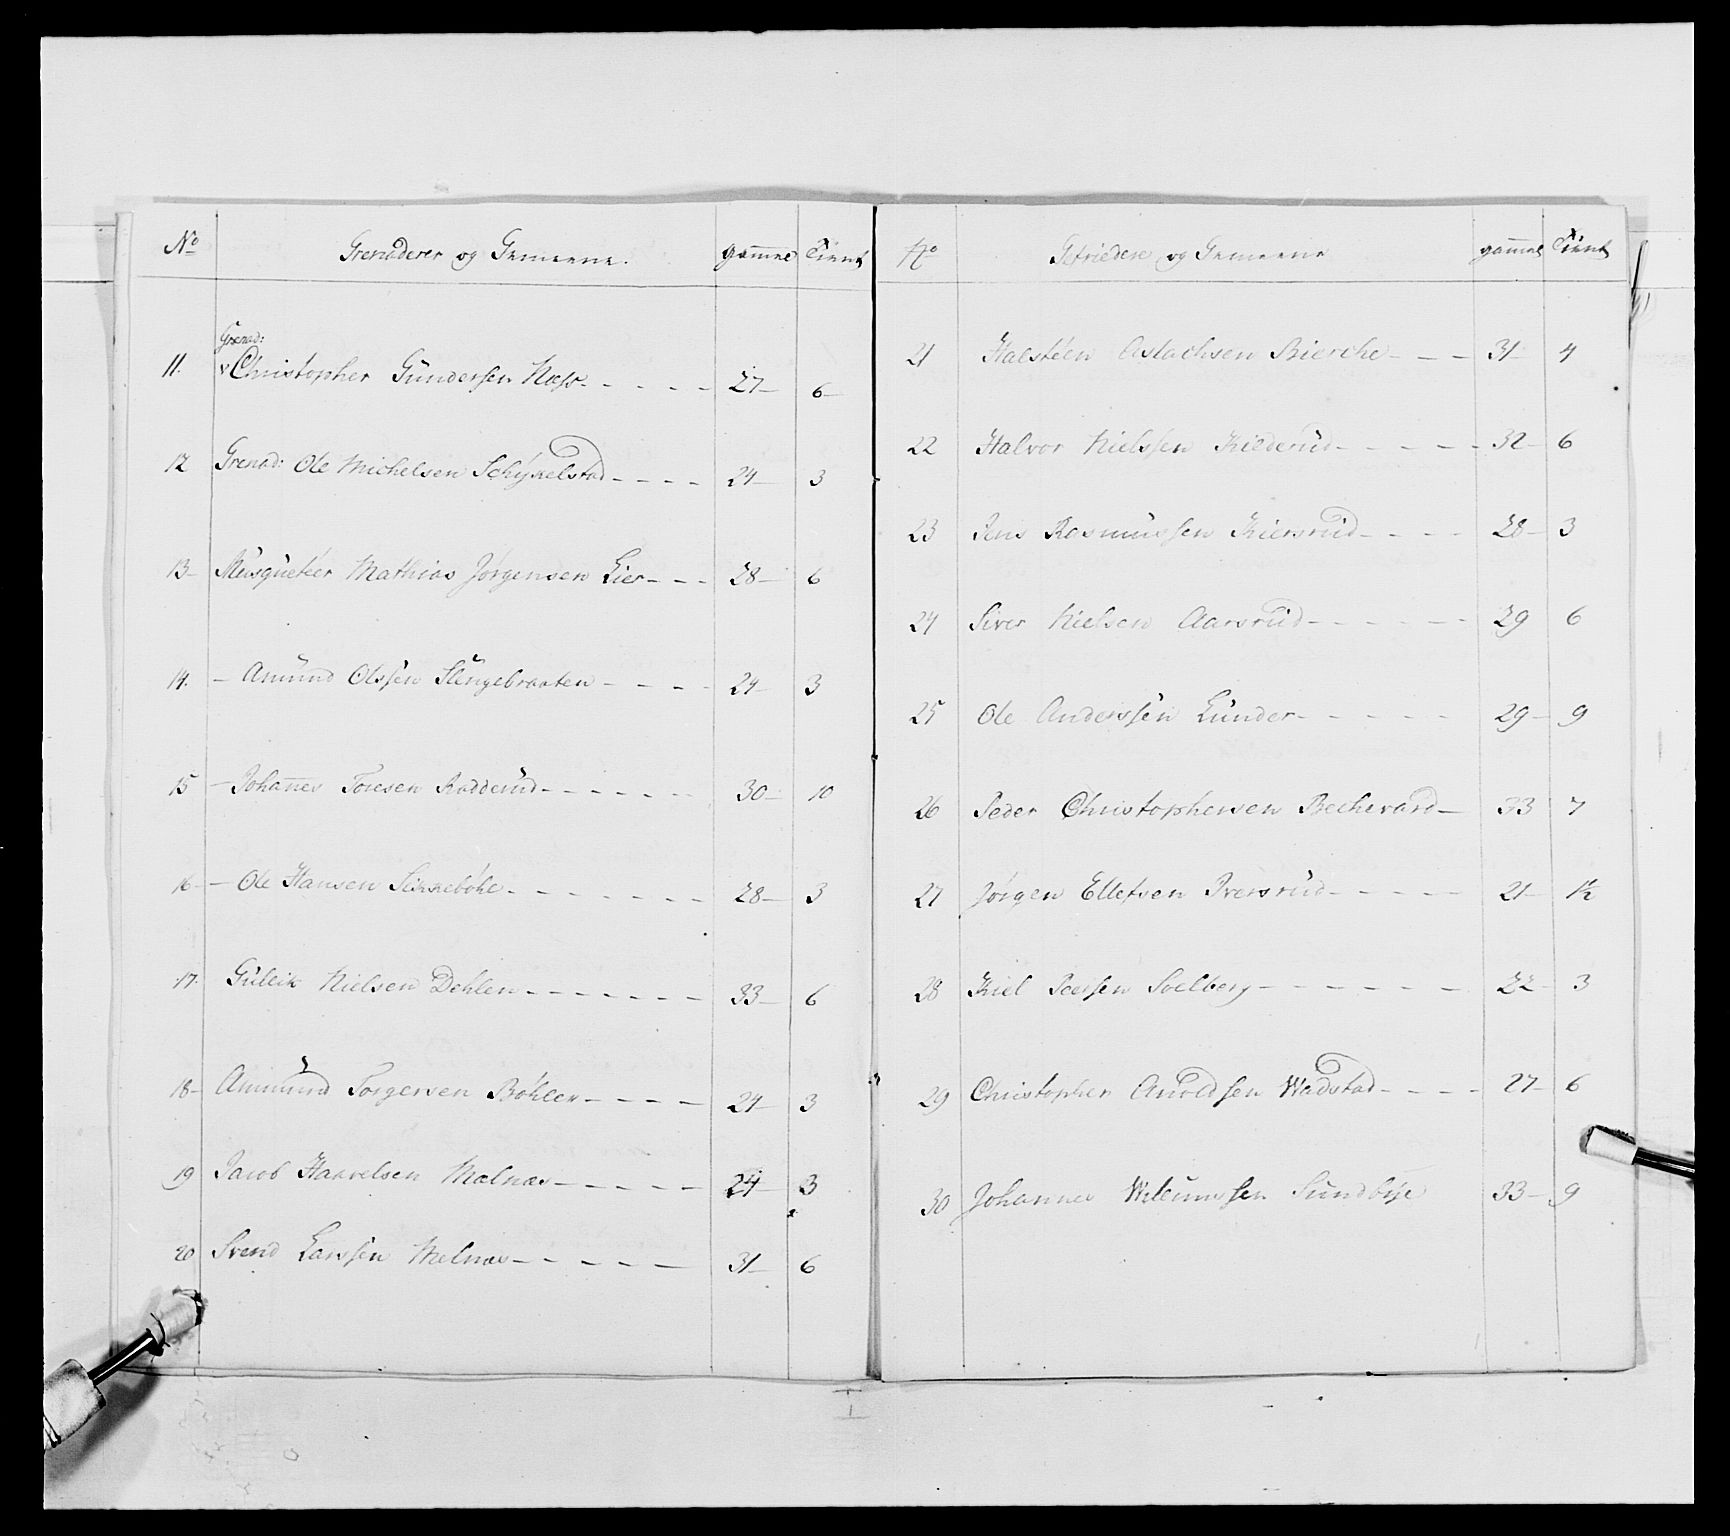 No Grenaderer og Gemeene. gammel Tient
Grenad:
11. Christopher Gundersen Næss 27 6
12 Grenad: Ole Michelsen Schyselstad 24 3
13 Musqueteer Mathias Jørgensen Lier 28 6
14. Amund Olssen Slengebraaten 24 3
15 Johannes Toresen Rodderud 30 10
16 Ole Hansen 28 3
17. Guleik Nielsen Dehlen 33 6
18 Ammund Torgersen Bøhler 24 3
19 Jacob Haavelsen Melnæs 24 3
20 Svend Larssen Melnæs 31 6
No Gefriedere og Gemeene gammel Tient
21 Halsteen Aslachsen Bierche 31 4
22 Halvor Nielssen Kilderud 32 6
23 Jens Rasmussen Kiersrud 28 3
24 Siver Nielsen Aarsrud 29 6
25 Ole Anderssen Lunder 29 9
26 Peder Christophersen Beckevard 33 7
27 Jørgen Ellefsen Iversrud 21 1½
28 Kiel Peersen Soelberg 22 3
29 Christopher Anoldsen Wadstad 27 6
30 Johannes Willumssen Sundbye 33 9